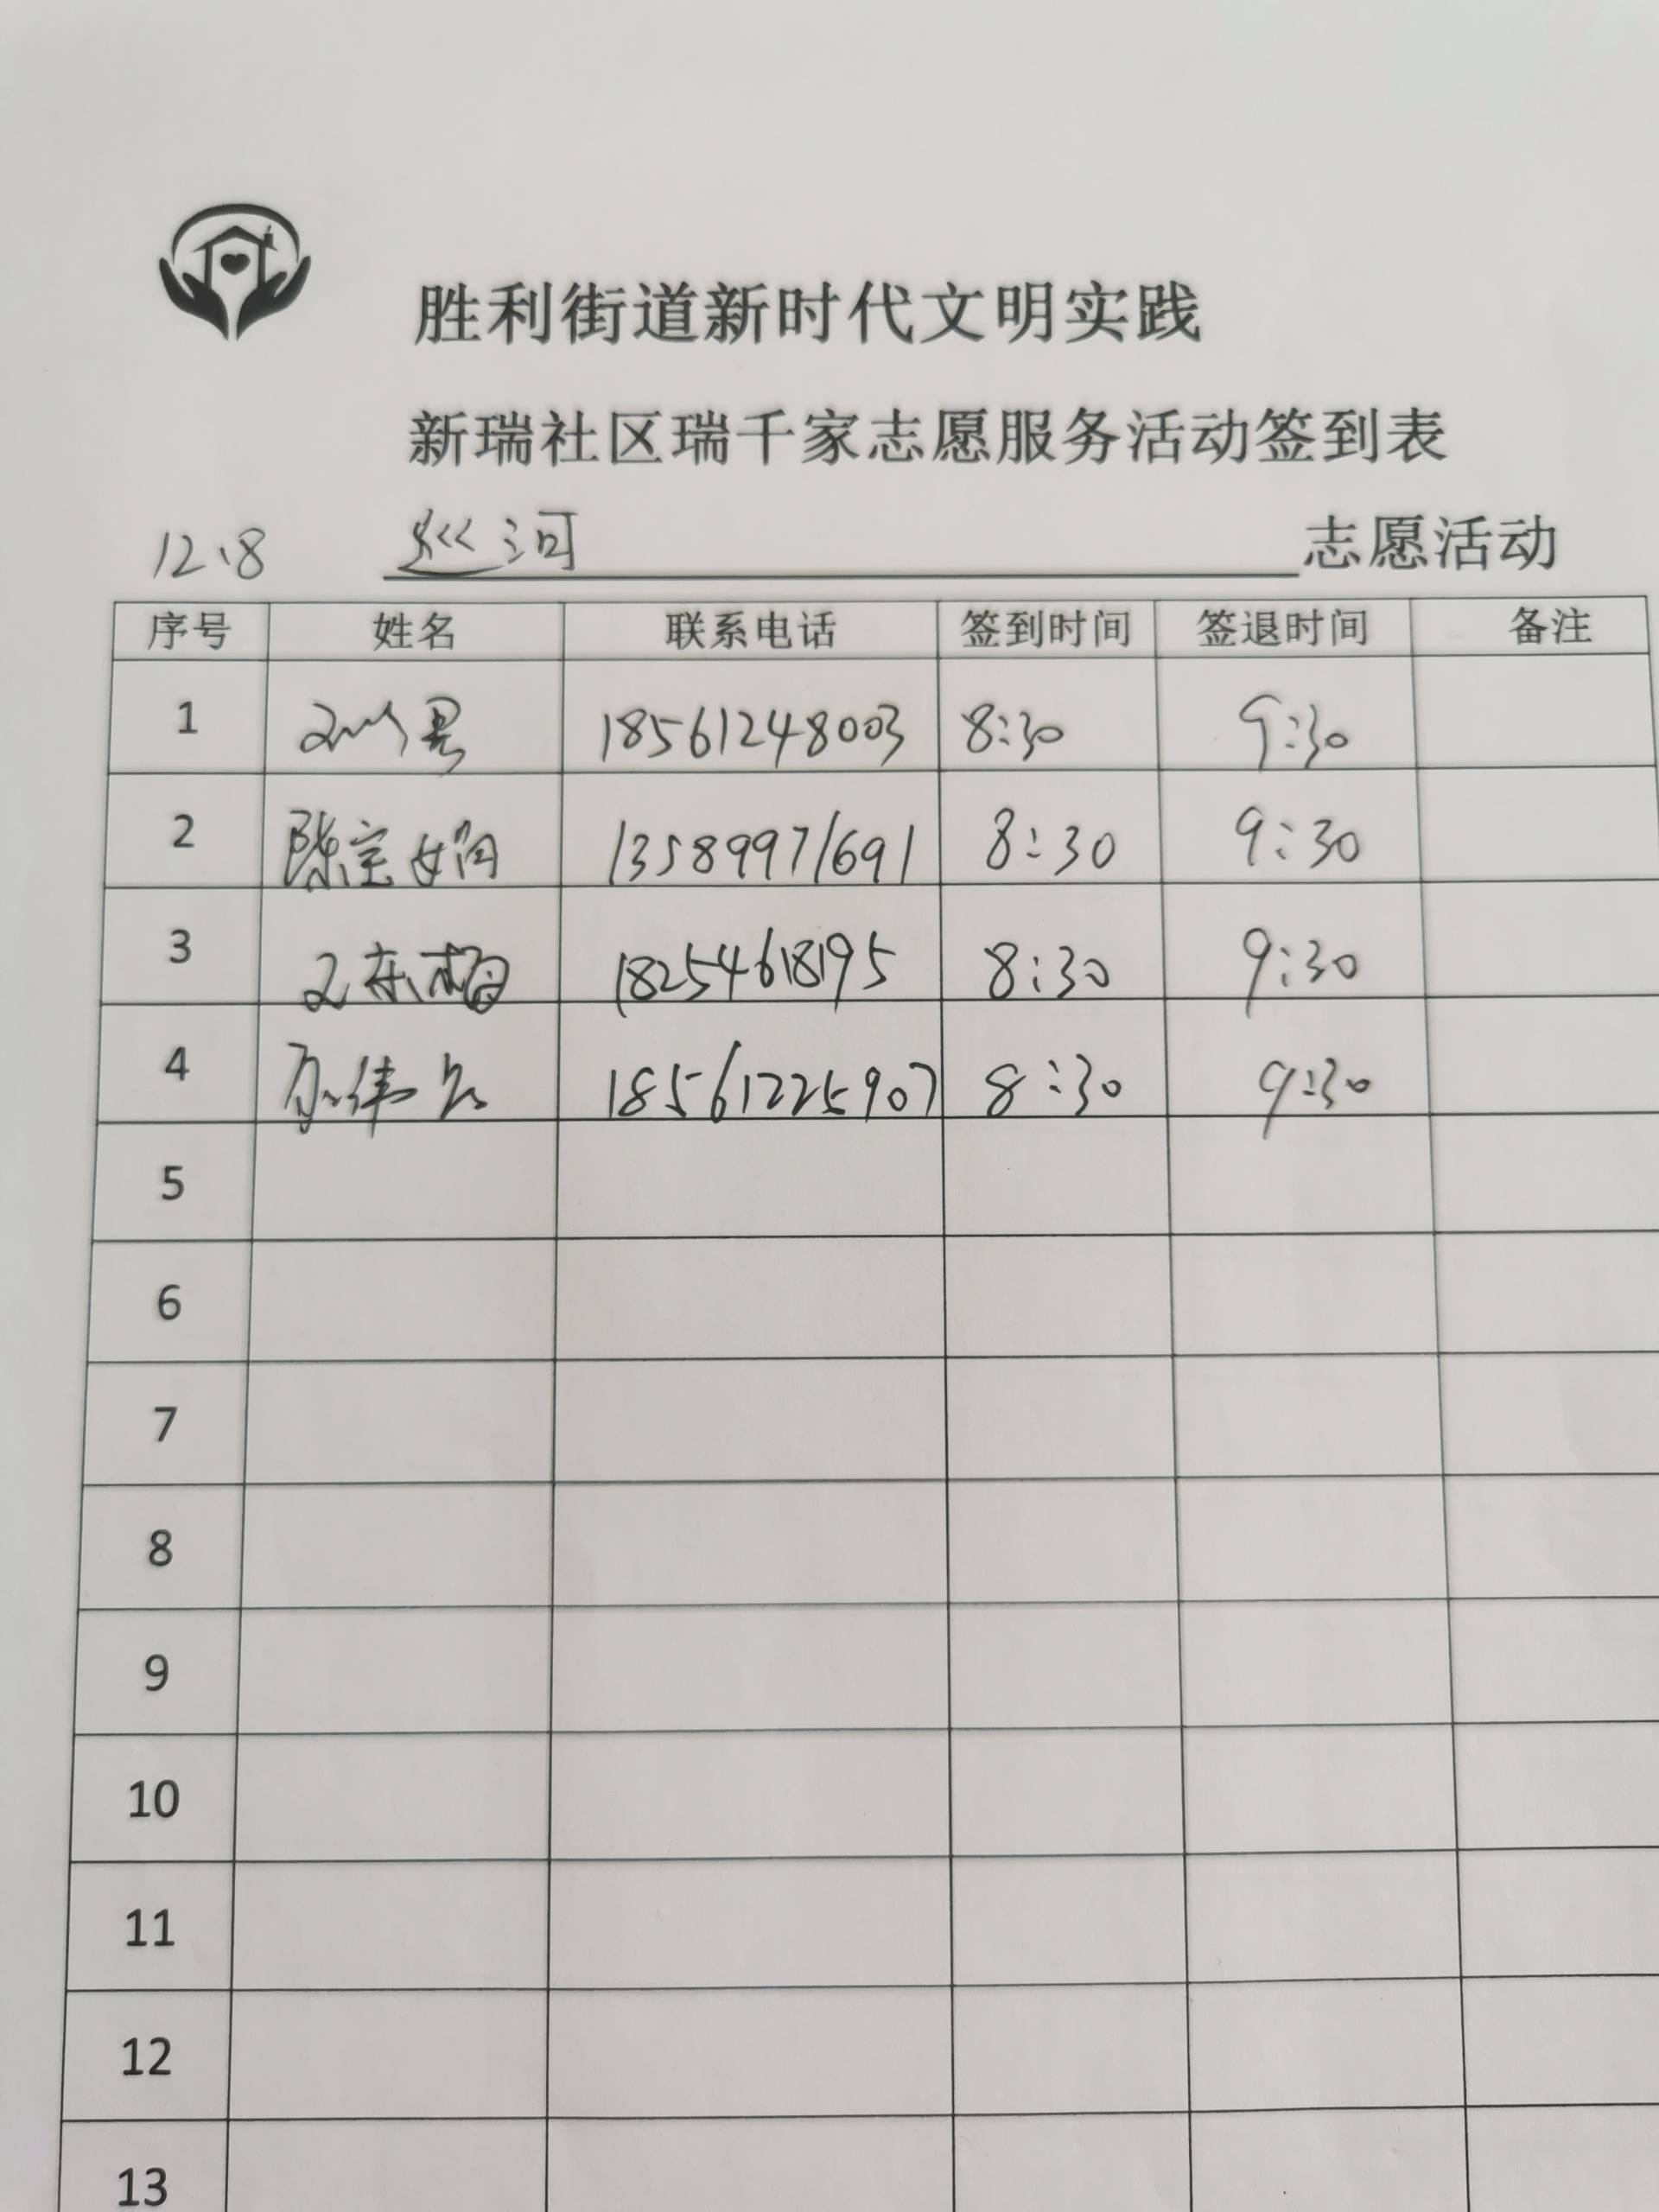 胜利街道新时代文明实践
新瑞社区瑞千家志愿服务活动签到表
12.8 巡河 志愿活动
序号 姓名 联系电话 签到时间 签退时间 备注
1 18561248003 8:30 9:30
2 陈宝娟 13589971691 8:30 9:30
3 王东梅 18254618195 8:30 9:30
4 18561225907 8:30 9:30
5
6
7
8
9
10
11
12
13